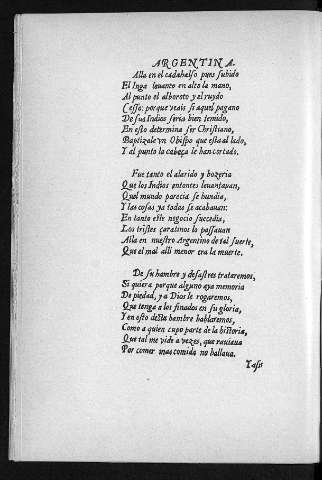 ARGENTINA.
Alla en el cadahalso pues subido
El Inga leuanto en alto la mano,
Al punto el alboroto y el ruydo
Cesso: porque veais si aquel pagano
De sus Indios seria bien temido,
En esto determina ser Christiano,
Baptizale vn Obispo que esta al lado,
Y al punto la cabeça le han cortado.
Fue tanto el alarido y bozeria
Que los Indios entonces leuantauan,
Quel mundo parecia se hundia,
Y las cosas ya todas se acabauan:
En tanto este negocio succedia,
Los tristes çaratinos lo passauan
Alla en nuestro Argentino de tal suerte,
Que el mal alli menor era la muerte.
De su hambre y desastres trataremos,
Si quiera porque alguno aya memoria
De piedad, y a Dios le rogaremos,
Que tenga a los finados en su gloria,
Y en esto desta hambre hablaremos,
Como a quien cupo parte de la historia,
Que tal me vide a vezes, que rauiaua
Por comer mas comida no hallaua.
Yasis